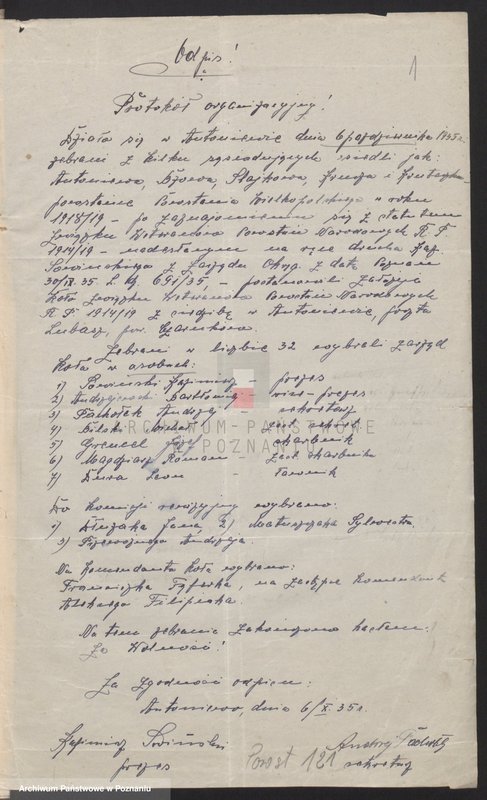 Odpis!
1
Protokół organizacyjny!
Działo się w Antoniewie dnia 6 października 1935 r.
zebrani z kilku sąsiadujących siedli jak:
Antoniewa, Sławna, Stajkowa, Krucza i
powstańcy Powstania Wielkopolskiego w roku
1918/19 – po zaznajomieniu się z statutem
Związku Weteranów Powstań Narodowych R. P.
1914/19 – nadesłanym na ręce druha Kaz.
Sowińskiego z Zarządu Okręg. z datą Poznań
30/IX. 35. L. dz. 691/35, – postanowili założyć
Koło Związku Weteranów Powstań Narodowych
R. P. 1914/19 z siedzibą w Antoniewie, poczta
Lubasz, pow. Czarnków.
Zebrani w liczbie 32 wybrali zarząd
Koła w osobach:
1) Sowiński Kazimierz – prezes
2) Bartłomiej – vice-prezes
3) Andrzej – sekretarz
4) – zast. sekret.
5) – skarbnik
6) Roman – zast. skarbnika
7) Dura Leon – ławnik
Do komisji rewizyjnej wybrano:
1) Jana, 2) Matuszczaka Sylwestra,
3) Andrzeja.
Na Komendanta Koła wybrano:
Franciszka, na zastępcę komendanta
Filipiaka.
Na tem zebranie zakończono hasłem:
Za Wolność!
Za zgodność odpisu:
Antoniewo, dnia 6/X. 35 r.
Kazimierz Sowiński
prezes
Andrzej
sekretarz
Powst 121
ARCHIWUM PAŃSTWOWE
W POZNANIU
Archiwum Państwowe w Poznaniu